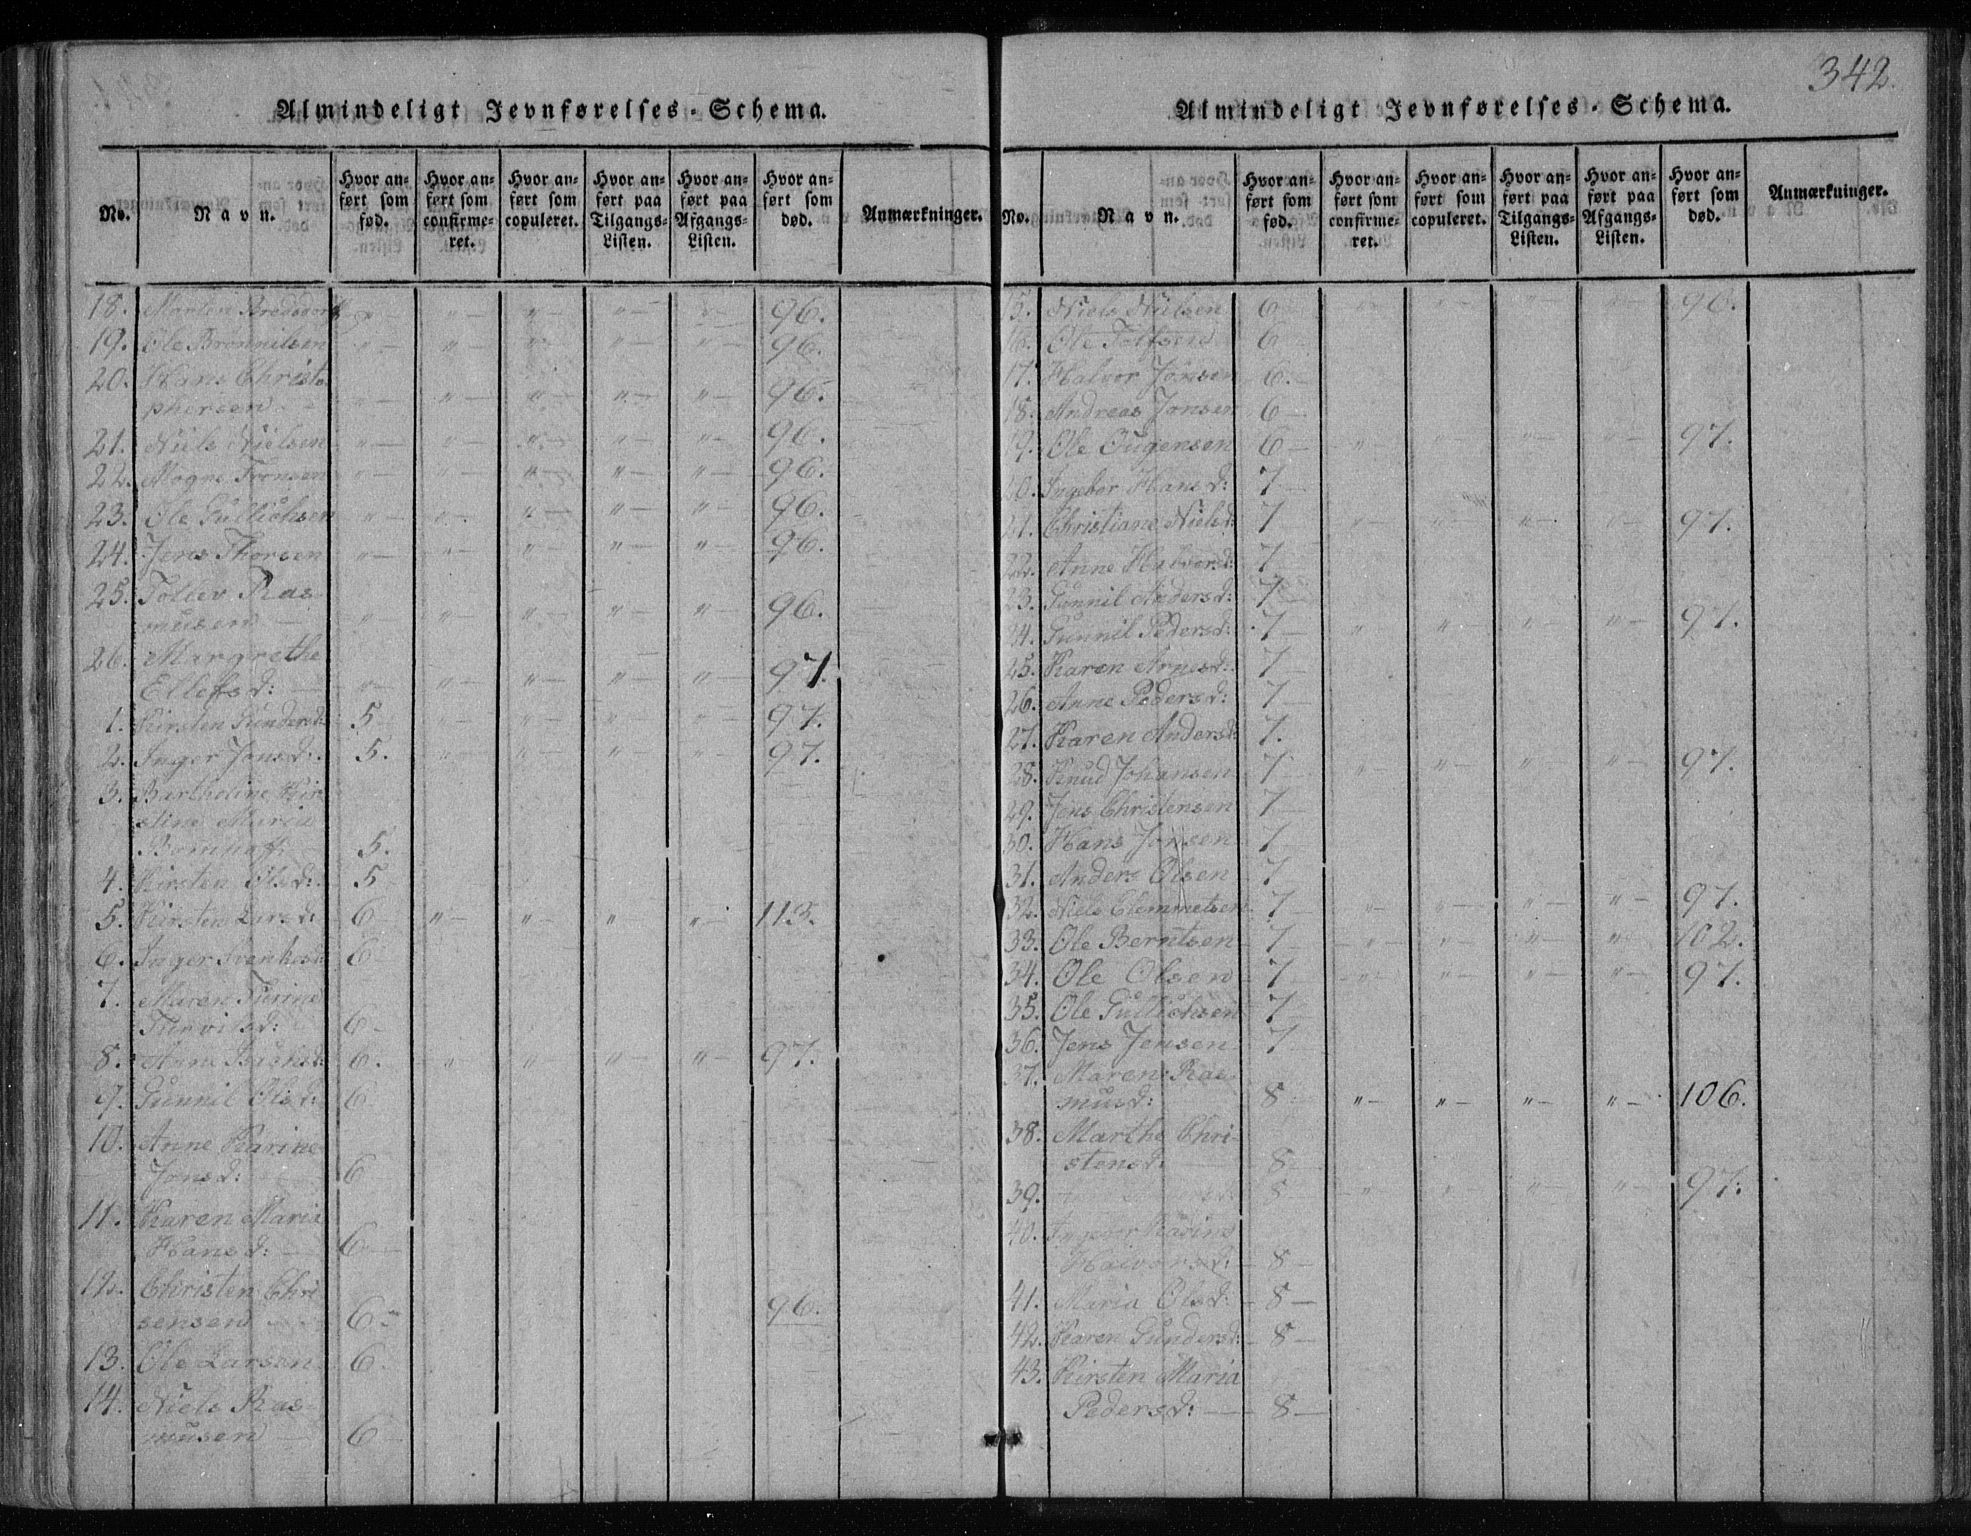 342.
Almindeligt Jevnførelses-Schema.
No. Navn. Hvor anført som fød. Hvor anført som confirmeret. Hvor anført som copuleret. Hvor anført paa Tilgangs-Listen. Hvor anført paa Afgangs-Listen. Hvor anført som død. Anmærkninger.
18. Morten 〃— 〃— 〃— 〃— 〃— 96.
19. Ole 〃— 〃— 〃— 〃— 〃— 96.
20. Hans Christo
phersen 〃— 〃— 〃— 〃— 〃— 96.
21. Niels Nielsen 〃— 〃— 〃— 〃— 〃— 96.
22. Mogne 〃— 〃— 〃— 〃— 〃— 96.
23. Ole Gullichsen 〃— 〃— 〃— 〃— 〃— 96.
24. Jens Thorsen 〃— 〃— 〃— 〃— 〃— 96.
25. Tollev Ras
musen 〃— 〃— 〃— 〃— 〃— 96.
26. Margrethe
Ellefsd: 〃— 〃— 〃— 〃— 〃— 97.
1. Kirsten Gundersd: 5 〃— 〃— 〃— 〃— 97.
2. Inger Jonsd: 5. 〃— 〃— 〃— 〃— 97.
3. Bartholine Kir
stine Maria
5.
4. Kirsten Olsd: 5
5. Kirsten Larsd: 6 〃— 〃— 〃— 〃— 113.
6. Inger 6
7. Maren
6
8. Anne 6. 〃 〃— 〃— 〃— 97.
9. Gunnil Olsd: 6
10. Anne Karine
Jonsd: 6
11. Karen Maria
Hansd: 6
12. Christen Chri
sensen 6 96.
13. Ole Larsen 6
14. Niels Ras
musen 6
Almindeligt Jevnførelses-Schema.
No. Navn. Hvor anført som fød. Hvor anført som confirmeret. Hvor anført som copuleret. Hvor anført paa Tilgangs-Listen. Hvor anført paa Afgangs-Listen. Hvor anført som død. Anmærkninger.
15. Niels Nielsen 6 〃— 〃— 〃— 〃— 96.
16. Ole Tolfsen 6
17. Halvor Jonsen 6.
18. Andreas Jonsen 6
19. Ole 6 〃— 〃— 〃— 〃— 97.
20. Ingebor Hansd: 7
21. Christiane Nielsd: 7 〃— 〃— 〃— 〃— 97.
22. Anne Halvorsd: 7
23. Gunnil Andersd: 7
24. Gunnil Pedersd: 7 〃 〃— 〃— 〃— 97.
25. Karen Arnesd: 7
26. Anne Pedersd: 7
27. Karen Andersd: 7.
28. Knud Johansen 7 〃— 〃— 〃— 〃— 97.
29. Jens Christensen 7
30. Hans Jonsen 7
31. Anders Olsen 7
32. Niels Clemmetsen 7 〃— 〃— 〃— 〃— 97.
33. Ole Berntsen 7 〃— 〃— 〃— 〃— 102.
34. Ole Olsen 7 〃— 〃— 〃— 〃— 97.
35. Ole Gullichsen 7
36. Jens Jensen 7
37. Maren Ras
musd: 8 〃— 〃— 〃— 〃— 106.
38. Marthe Chri
stensd: 8
39. 8 〃— 〃 〃— 〃— 97.
40.
Halvorsd: 8
41. Maria Olsd: 8
42. Karen Gundersd: 8
43. Kirsten Maria
Pedersd: 8